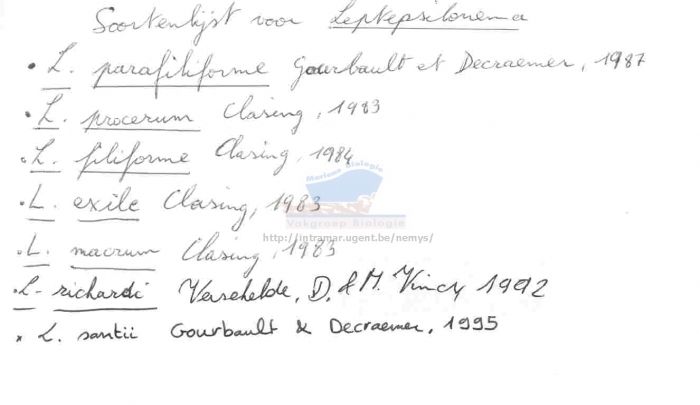 Soortenlijst voor Leptepsilonema
• L. parafiliforme Gourbault et Decraemer, 1987
• L. procerum Clasing, 1983
• L. filiforme Clasing, 1984
Mariene Biologie
• L. exile Clasing, 1983
Vakgroep Biologie
http://intramar.ugent.be/nemys/
• L. macrum Clasing, 1983
• L. richardi Verschelde, D. & M. Vincx 1992
* L. santii Gourbault & Decraemer, 1995